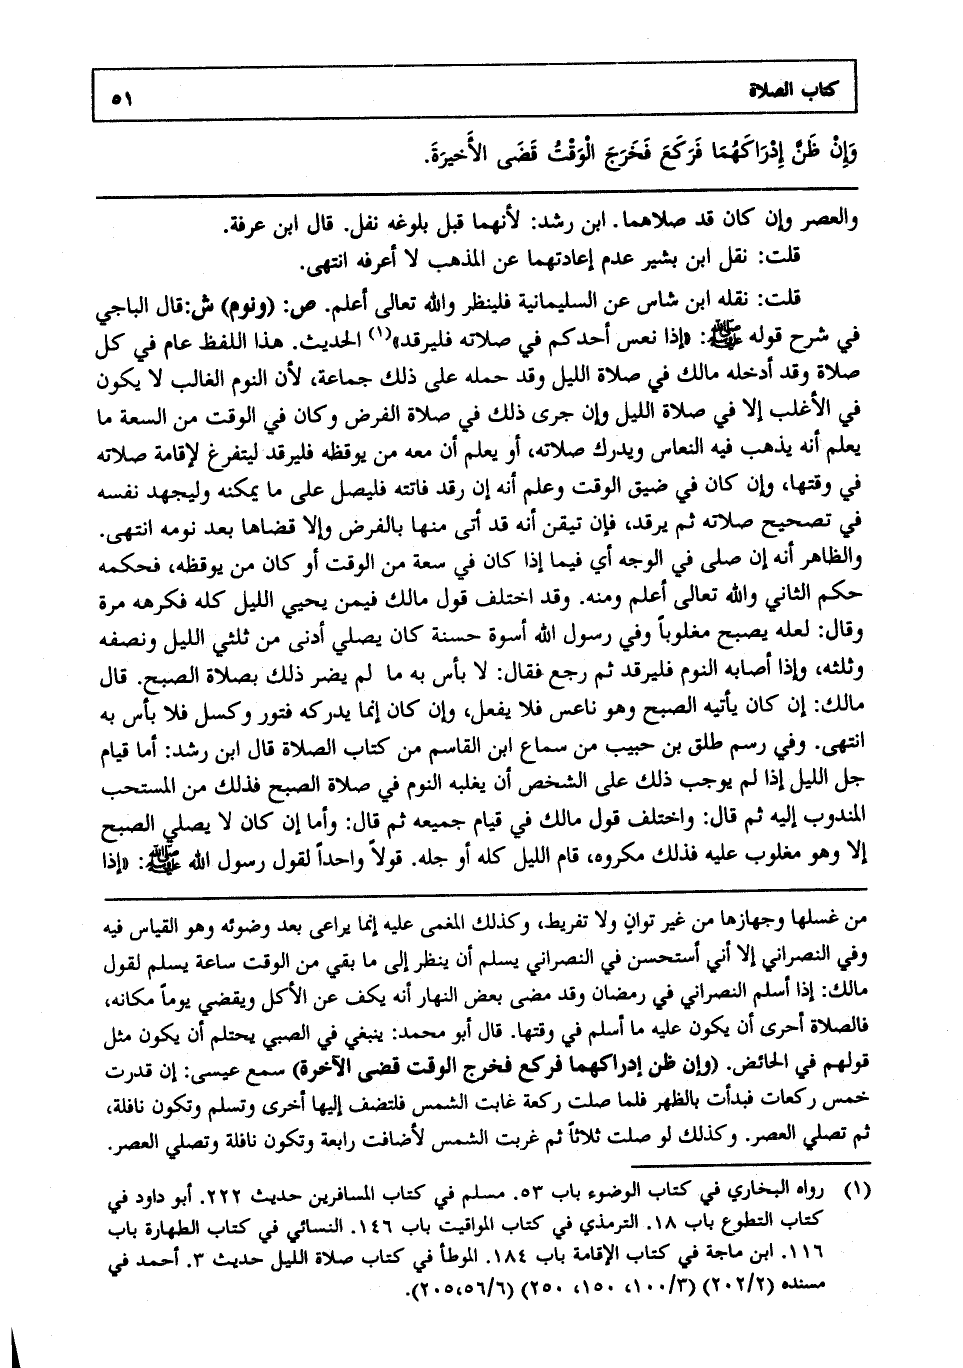 كتاب الصلاة ٥١
وَإِنْ ظَنَّ إِدْرَاكَهُمَا فَرَكَعَ فَخَرَجَ الْوَقْتُ قَضَى الأَخِيرَةَ.
والعصر وإن كان قد صلاهما. ابن رشد: لأنهما قبل بلوغه نفل. قال ابن عرفة.
قلت: نقل ابن بشير عدم إعادتهما عن المذهب لا أعرفه انتهى.
قلت: نقله ابن شاس عن السليمانية فلينظر والله تعالى أعلم. ص: (ونوم) ش:قال الباجي
في شرح قوله ﷺ: «إذا نعس أحدكم في صلاته فليرقد»(١) الحديث. هذا اللفظ عام في كل
صلاة وقد أدخله مالك في صلاة الليل وقد حمله على ذلك جماعة، لأن النوم الغالب لا يكون
في الأغلب إلا في صلاة الليل وإن جرى ذلك في صلاة الفرض وكان في الوقت من السعة ما
يعلم أنه يذهب فيه النعاس ويدرك صلاته، أو يعلم أن معه من يوقظه فليرقد ليتفرغ لإقامة صلاته
في وقتها، وإن كان في ضيق الوقت وعلم أنه إن رقد فاتته فليصل على ما يمكنه وليجهد نفسه
في تصحيح صلاته ثم يرقد، فإن تيقن أنه قد أتى منها بالفرض وإلا قضاها بعد نومه انتهى.
والظاهر أنه إن صلى في الوجه أي فيما إذا كان في سعة من الوقت أو كان من يوقظه، فحكمه
حكم الثاني والله تعالى أعلم ومنه. وقد اختلف قول مالك فيمن يحيي الليل كله فكرهه مرة
وقال: لعله يصبح مغلوباً وفي رسول الله أسوة حسنة كان يصلي أدنى من ثلثي الليل ونصفه
وثلثه، وإذا أصابه النوم فليرقد ثم رجع فقال: لا بأس به ما لم يضر ذلك بصلاة الصبح. قال
مالك: إن كان يأتيه الصبح وهو ناعس فلا يفعل، وإن كان إنما يدركه فتور وكسل فلا بأس به
انتهى. وفي رسم طلق بن حبيب من سماع ابن القاسم من كتاب الصلاة قال ابن رشد: أما قيام
جل الليل إذا لم يوجب ذلك على الشخص أن يغلبه النوم في صلاة الصبح فذلك من المستحب
المندوب إليه ثم قال: واختلف قول مالك في قيام جميعه ثم قال: وأما إن كان لا يصلي الصبح
إلا وهو مغلوب عليه فذلك مكروه، قام الليل كله أو جله. قولاً واحداً لقول رسول الله ﷺ: «إذا
من غسلها وجهازها من غير توانٍ ولا تفريط، وكذلك المغمى عليه إنما يراعى بعد وضوئه وهو القياس فيه
وفي النصراني إلا أني أستحسن في النصراني يسلم أن ينظر إلى ما بقي من الوقت ساعة يسلم لقول
مالك: إذا أسلم النصراني في رمضان وقد مضى بعض النهار أنه يكف عن الأكل ويقضي يوماً مكانه،
فالصلاة أحرى أن يكون عليه ما أسلم في وقتها. قال أبو محمد: ينبغي في الصبي يحتلم أن يكون مثل
قولهم في الحائض. (وإن ظن إدراكهما فركع فخرج الوقت قضى الآخرة) سمع عيسى: إن قدرت
خمس ركعات فبدأت بالظهر فلما صلت ركعة غابت الشمس فلتضف إليها أخرى وتسلم وتكون نافلة،
ثم تصلي العصر. وكذلك لو صلت ثلاثاً ثم غربت الشمس لأضافت رابعة وتكون نافلة وتصلي العصر.
(١) رواه البخاري في كتاب الوضوء باب ٥٣. مسلم في كتاب المسافرين حديث ٢٢٢. أبو داود في
كتاب التطوع باب ١٨. الترمذي في كتاب المواقيت باب ١٤٦. النسائي في كتاب الطهارة باب
١١٦. ابن ماجة في كتاب الإقامة باب ١٨٤. الموطأ في كتاب صلاة الليل حديث ٣. أحمد في
مسنده (٢٠٢/٢) (١٠٠/٣، ١٥٠، ٢٥٠) (٢٠٥،٥٦/٦).